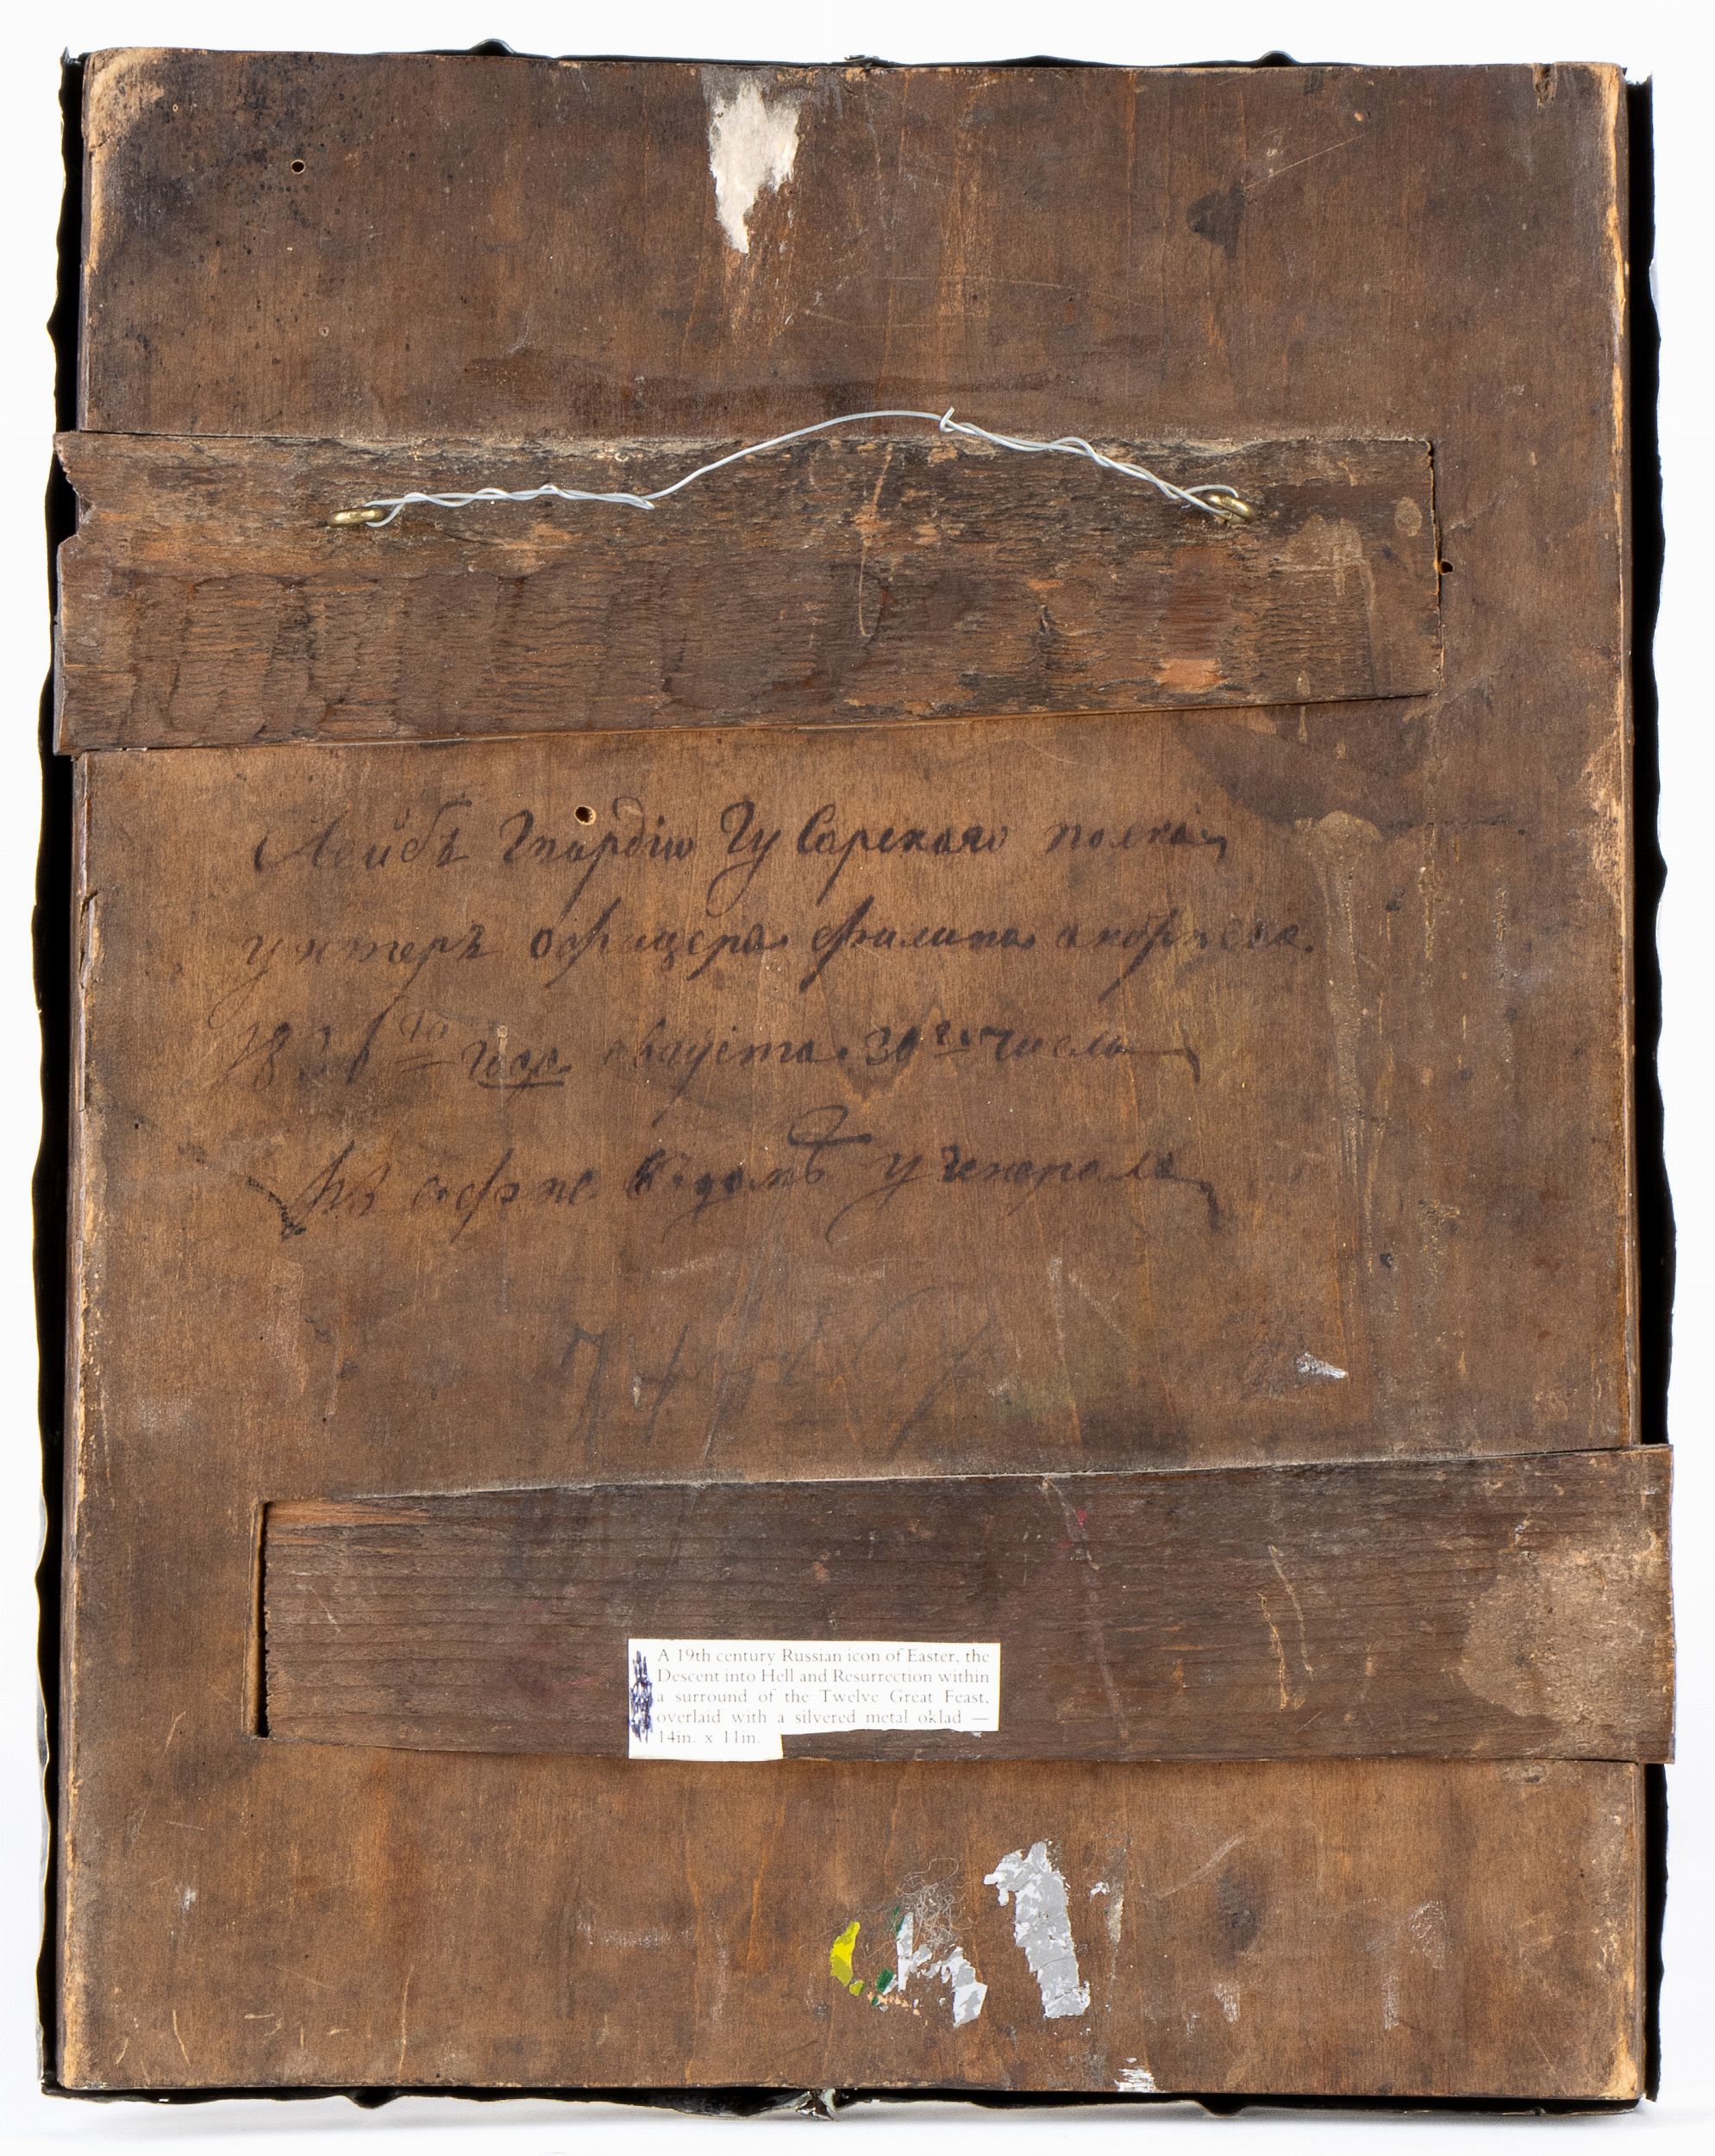 Лейбъ Гвардіи Гусарскаго полка
унтеръ офицера филипа
183 го год. августа 30го числа
въ софие въ домѣ у генерала
A 19th century Russian icon of Easter, the
Descent into Hell and Resurrection within
a surround of the Twelve Great Feast,
overlaid with a silvered metal oklad —
14in. x 11in.